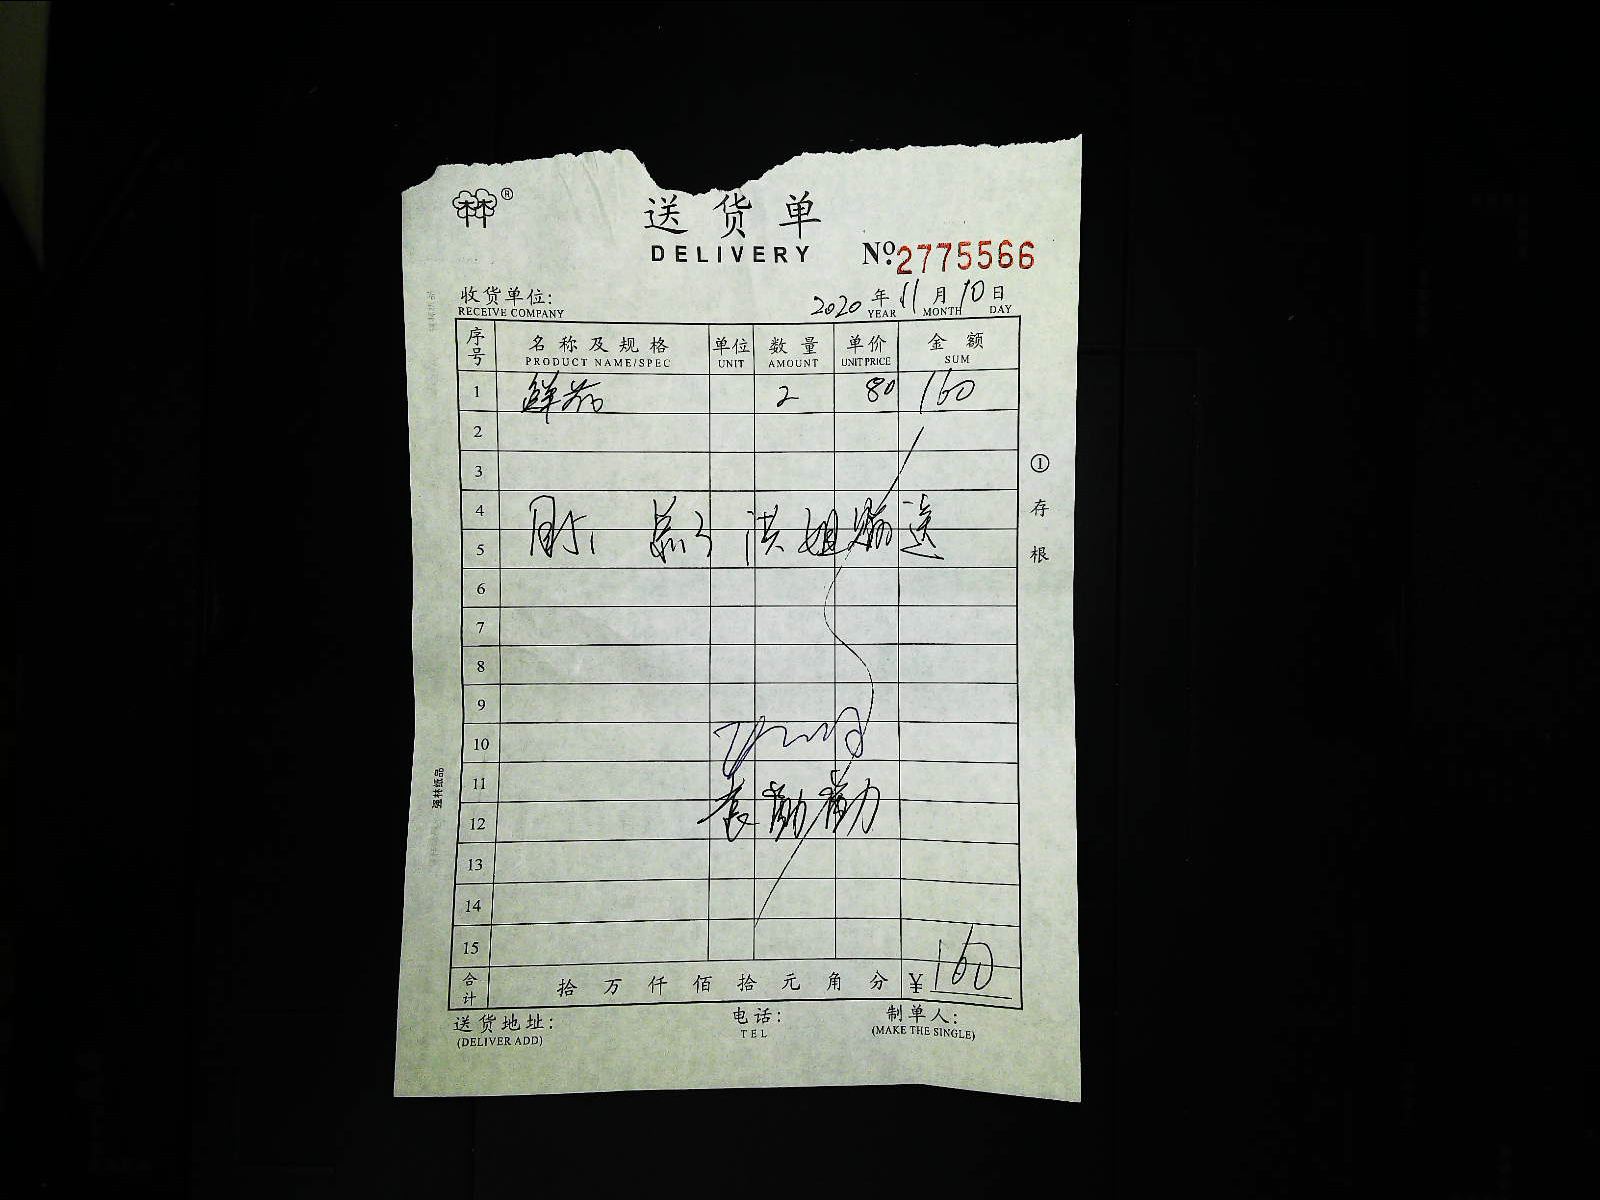 林®
送货单
DELIVERY
№ 2775566
收货单位:
RECEIVE COMPANY
2020 年 11 月 10 日
YEAR MONTH DAY
序号 名称及规格 单位 数量 单价 金额
PRODUCT NAME/SPEC UNIT AMOUNT UNIT PRICE SUM
1 鲜花 2 80 160
2
3
4
5
洪姐 送
6
7
8
9
10
11
12
袁勤勤
13
14
15
合计 拾 万 仟 佰 拾 元 角 分 ¥160
送货地址: 电话: 制单人:
(DELIVER ADD) TEL (MAKE THE SINGLE)
①存根
强林纸品